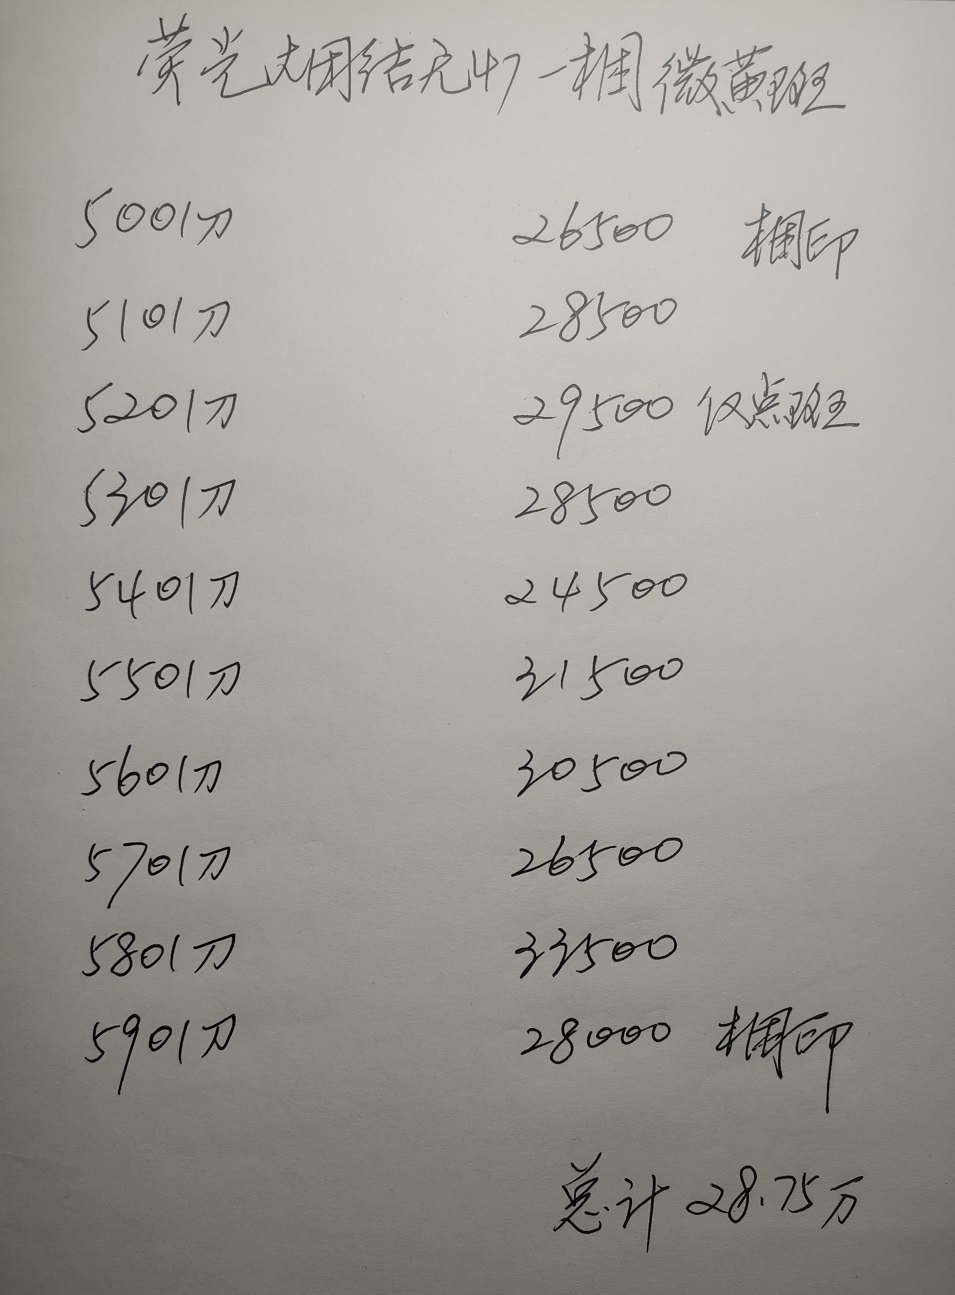 荧光大团结无47一捆微黄斑
5001刀 26500 捆印
5101刀 28500
5201刀 29500 仅点斑
5301刀 28500
5401刀 24500
5501刀 31500
5601刀 30500
5701刀 26500
5801刀 33500
5901刀 28000 捆印
总计 28.75万